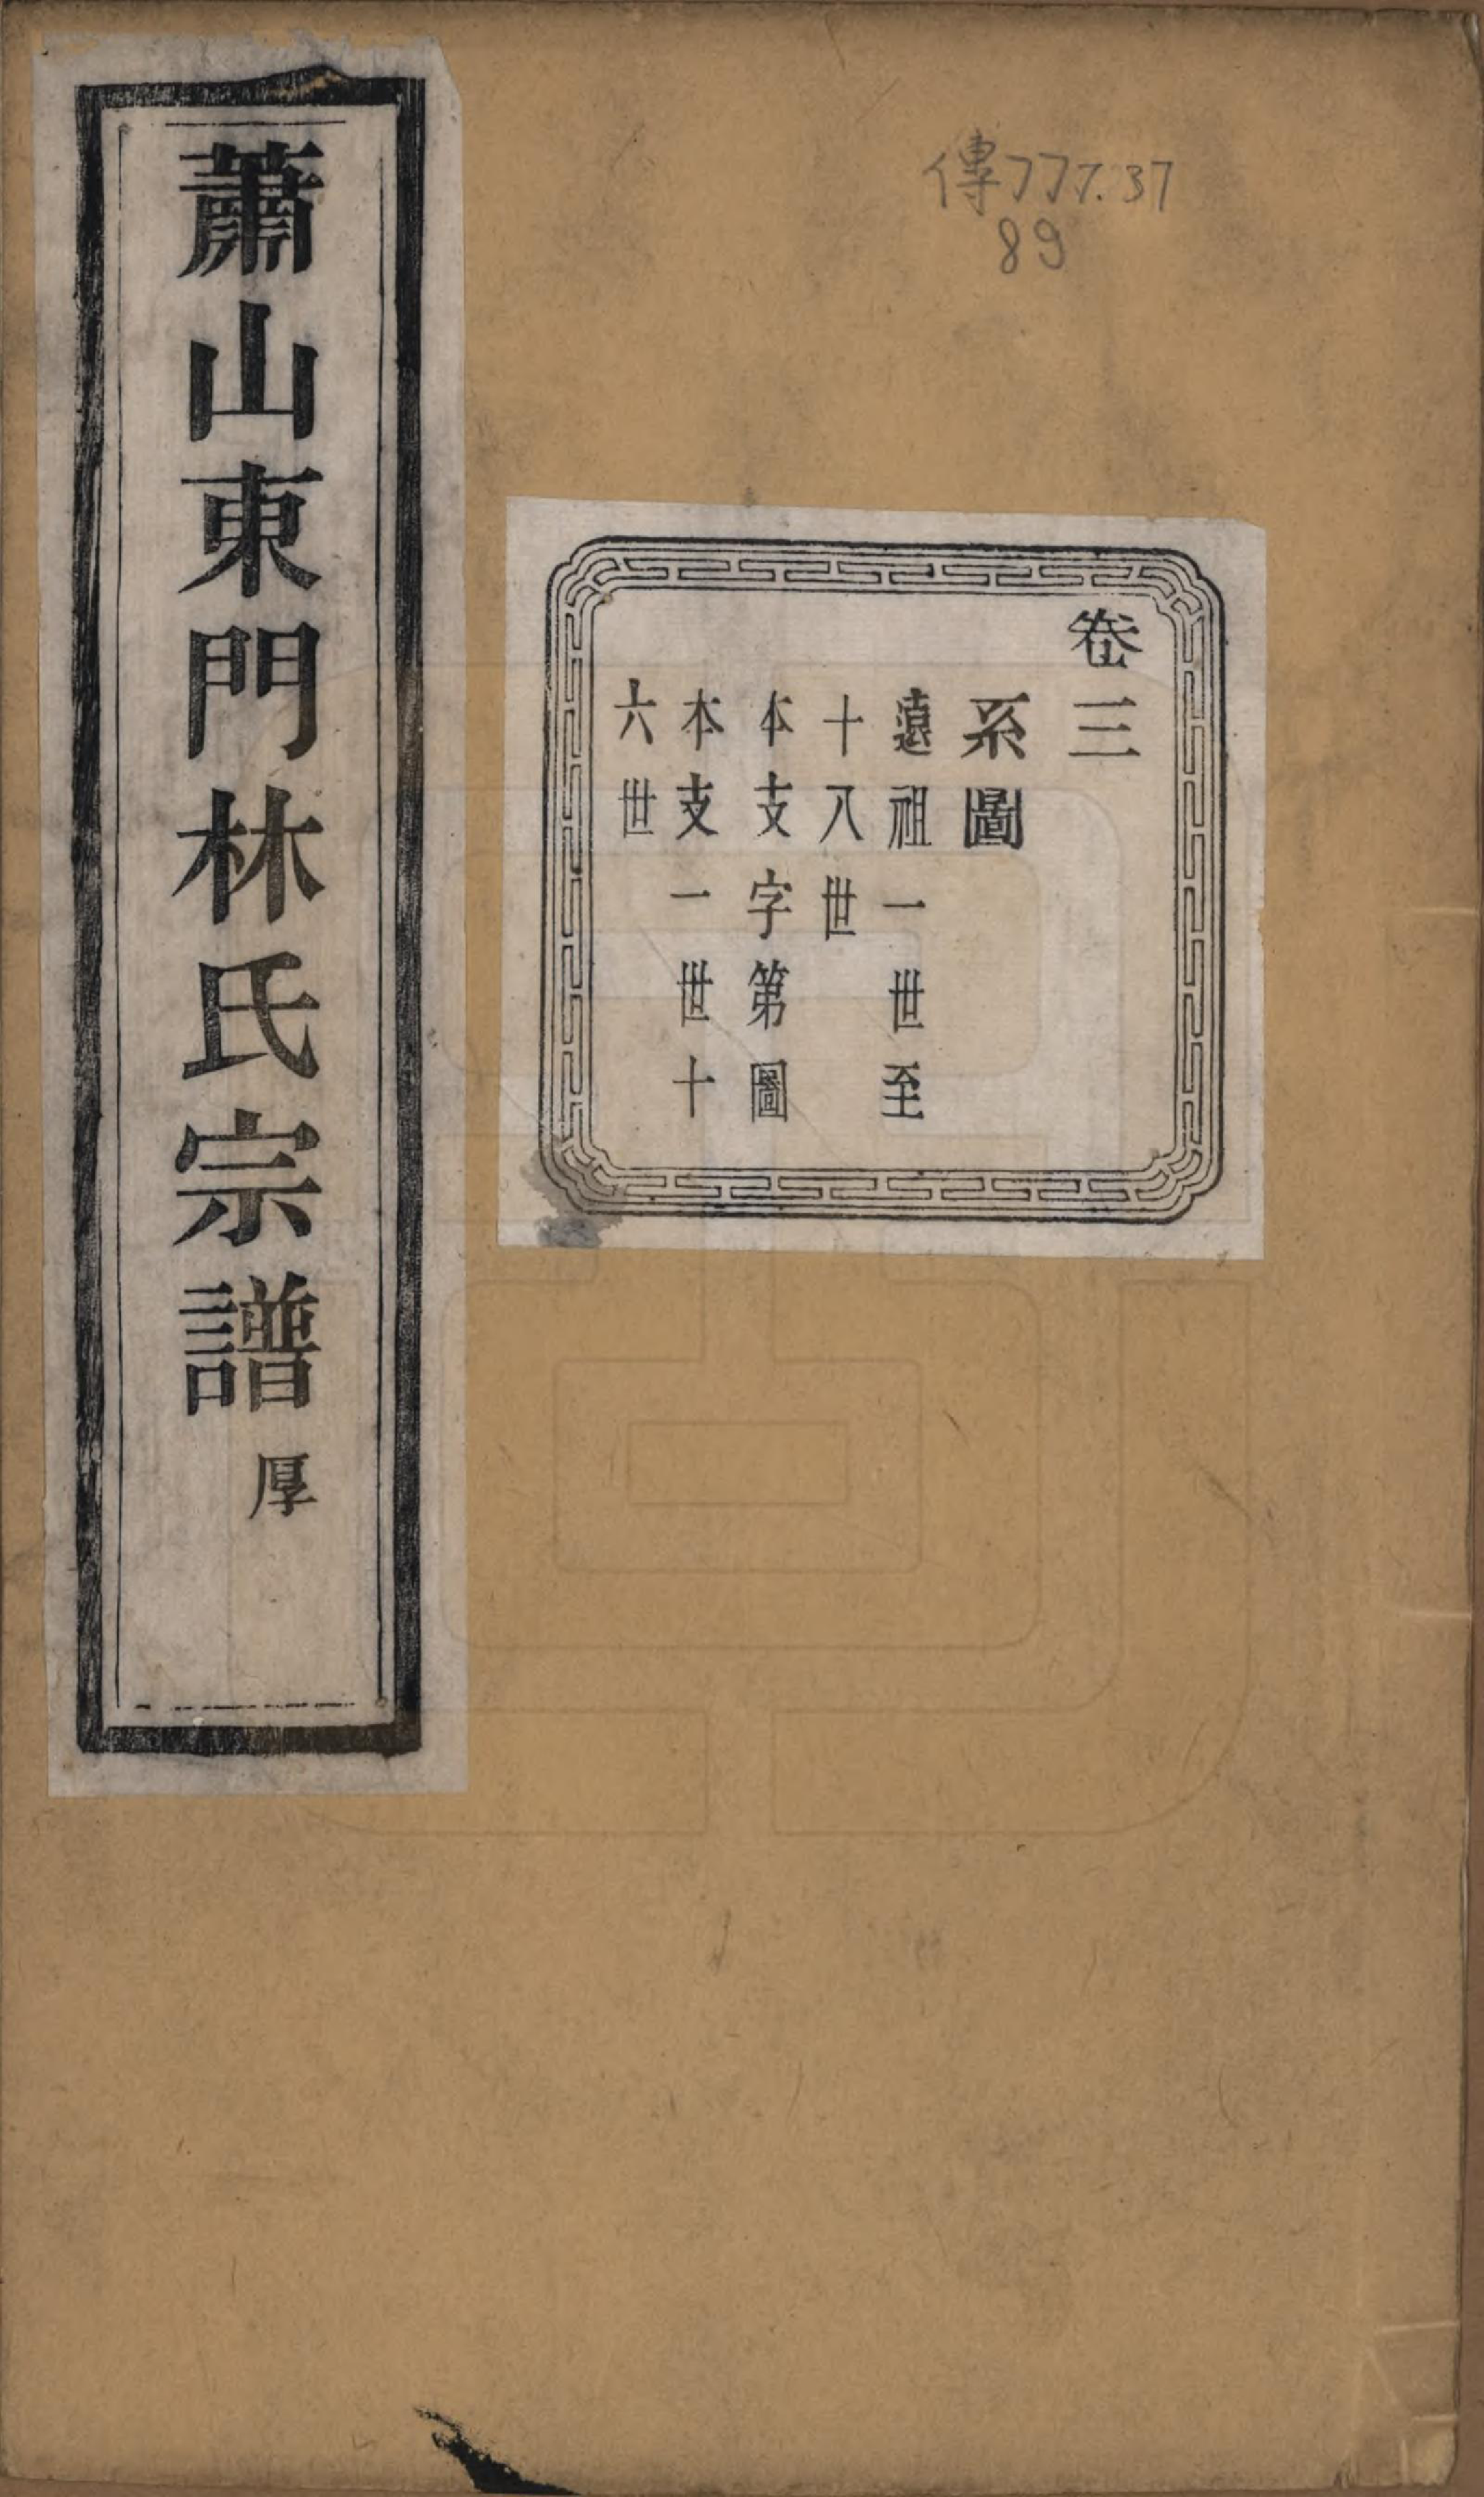 傳777.37
89
卷三
系圖
遠祖一世至
十八世
本支字第圖
本支一世十
六世
蕭山東門林氏宗譜厚